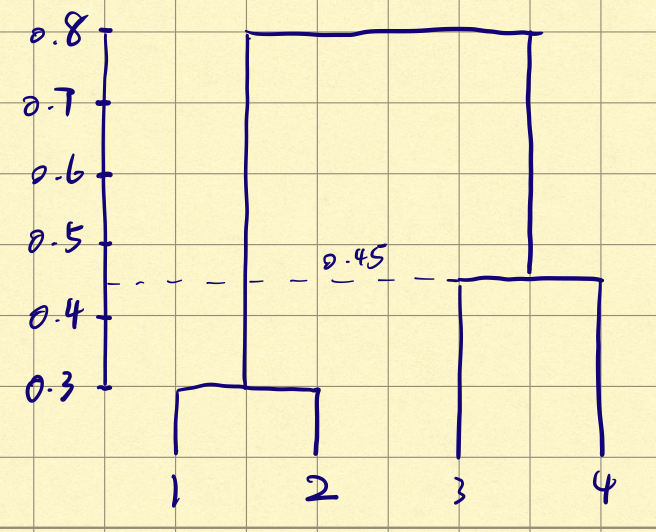 0.8
0.7
0.6
0.5
0.45
0.4
0.3
1 2 3 4